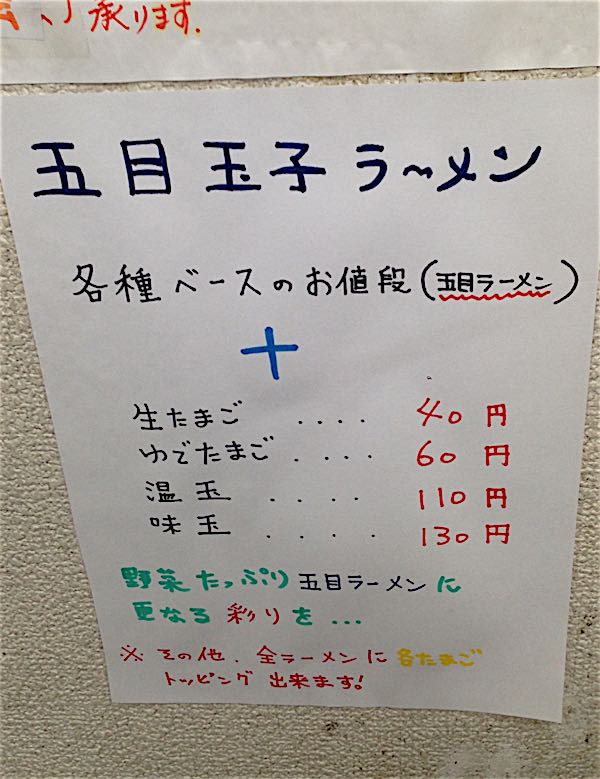 承ります.
五目玉子ラーメン
各種ベースのお値段(五目ラーメン)
+
生たまご .... 40円
ゆでたまご .... 60円
温玉 .... 110円
味玉 .... 130円
野菜たっぷり五目ラーメンに
更なる彩りを...
※その他、全ラーメンに各たまご
トッピング出来ます!